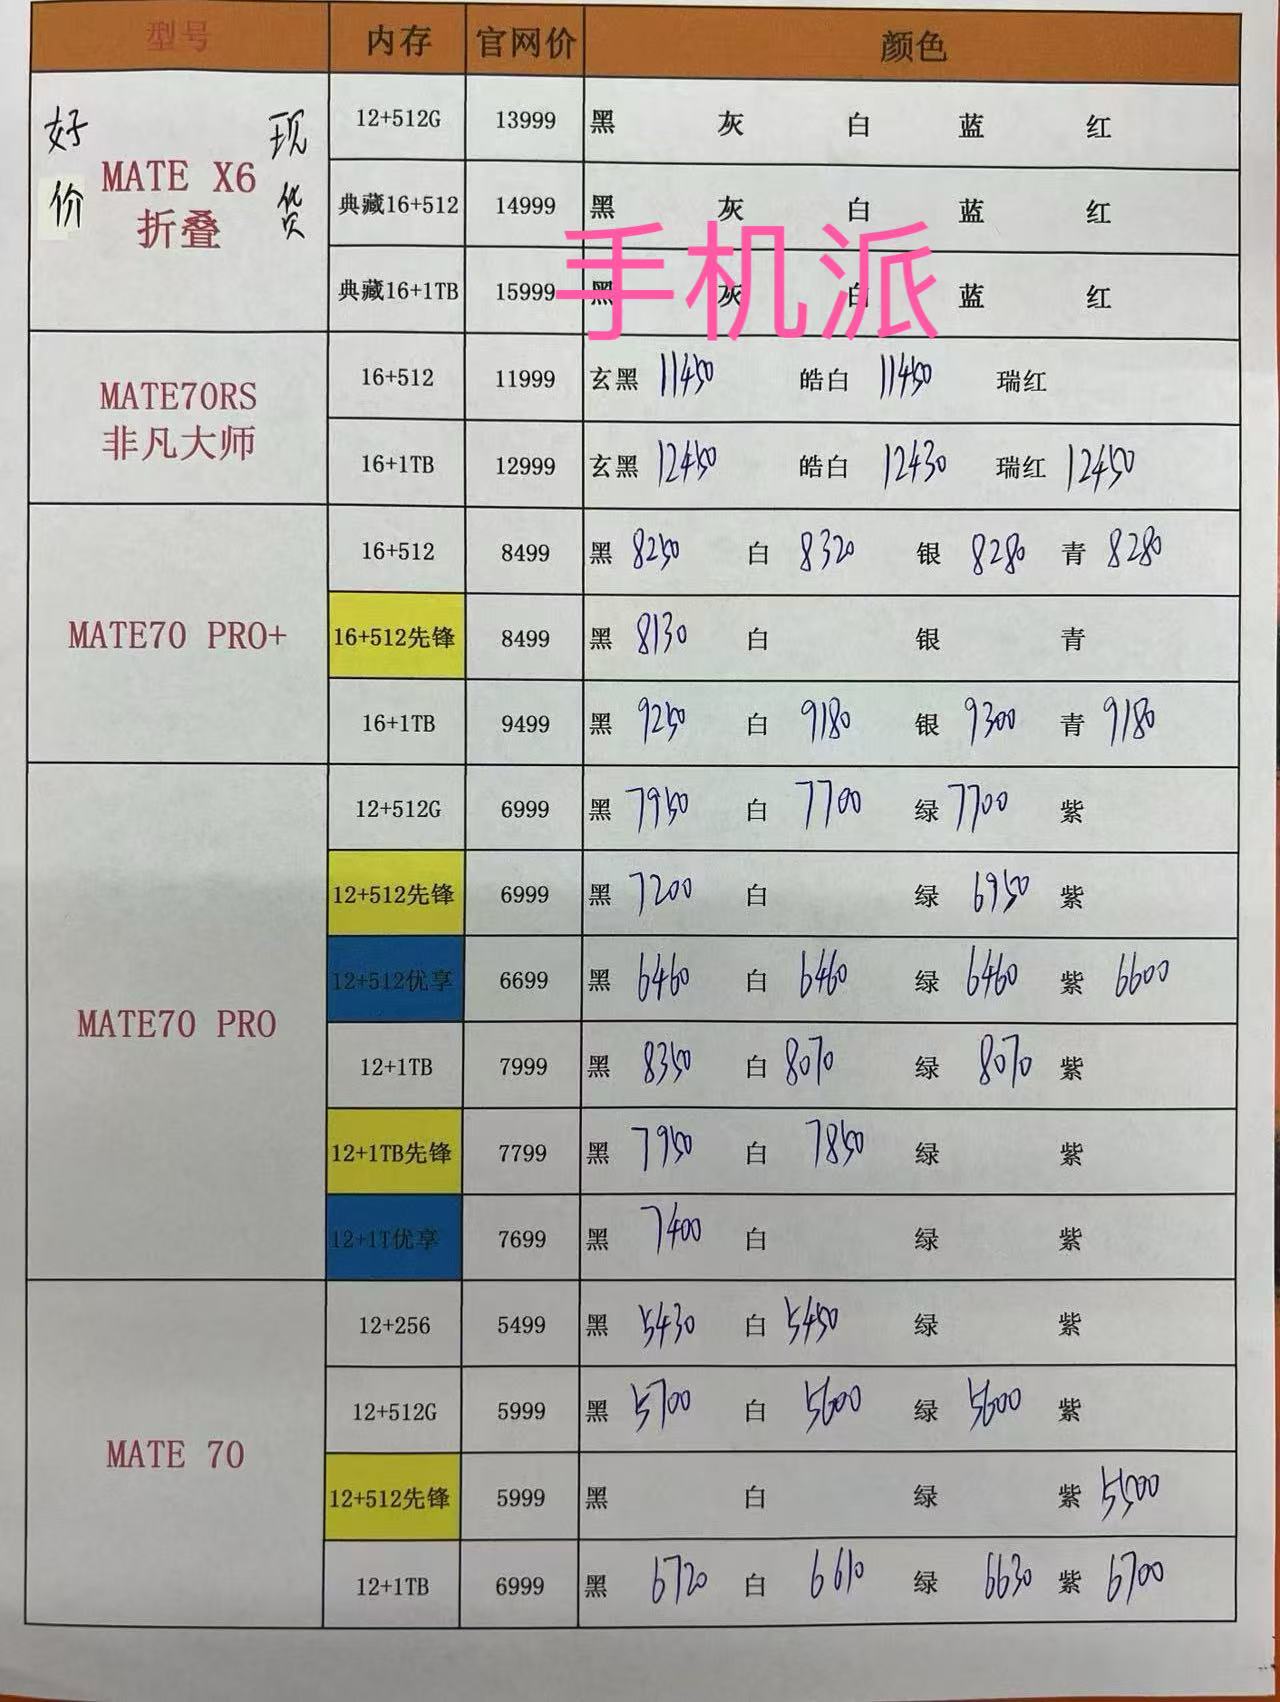 型号 内存 官网价 颜色
好价 MATE X6 折叠 现货
12+512G 13999 黑 灰 白 蓝 红
典藏16+512 14999 黑 灰 白 蓝 红
手机派
典藏16+1TB 15999 黑 灰 白 蓝 红
MATE70RS 非凡大师
16+512 11999 玄黑 11450 皓白 11450 瑞红
16+1TB 12999 玄黑 12450 皓白 12430 瑞红 12450
MATE70 PRO+
16+512 8499 黑 8250 白 8320 银 8280 青 8280
16+512先锋 8499 黑 8130 白 银 青
16+1TB 9499 黑 9250 白 9180 银 9300 青 9180
MATE70 PRO
12+512G 6999 黑 7950 白 7700 绿 7700 紫
12+512先锋 6999 黑 7200 白 绿 6950 紫
12+512优享 6699 黑 6460 白 6460 绿 6460 紫 6600
12+1TB 7999 黑 8350 白 8070 绿 8070 紫
12+1TB先锋 7799 黑 7950 白 7850 绿 紫
12+1T优享 7699 黑 7400 白 绿 紫
MATE 70
12+256 5499 黑 5430 白 5450 绿 紫
12+512G 5999 黑 5700 白 5600 绿 5600 紫
12+512先锋 5999 黑 白 绿 紫 5500
12+1TB 6999 黑 6720 白 6610 绿 6630 紫 6700